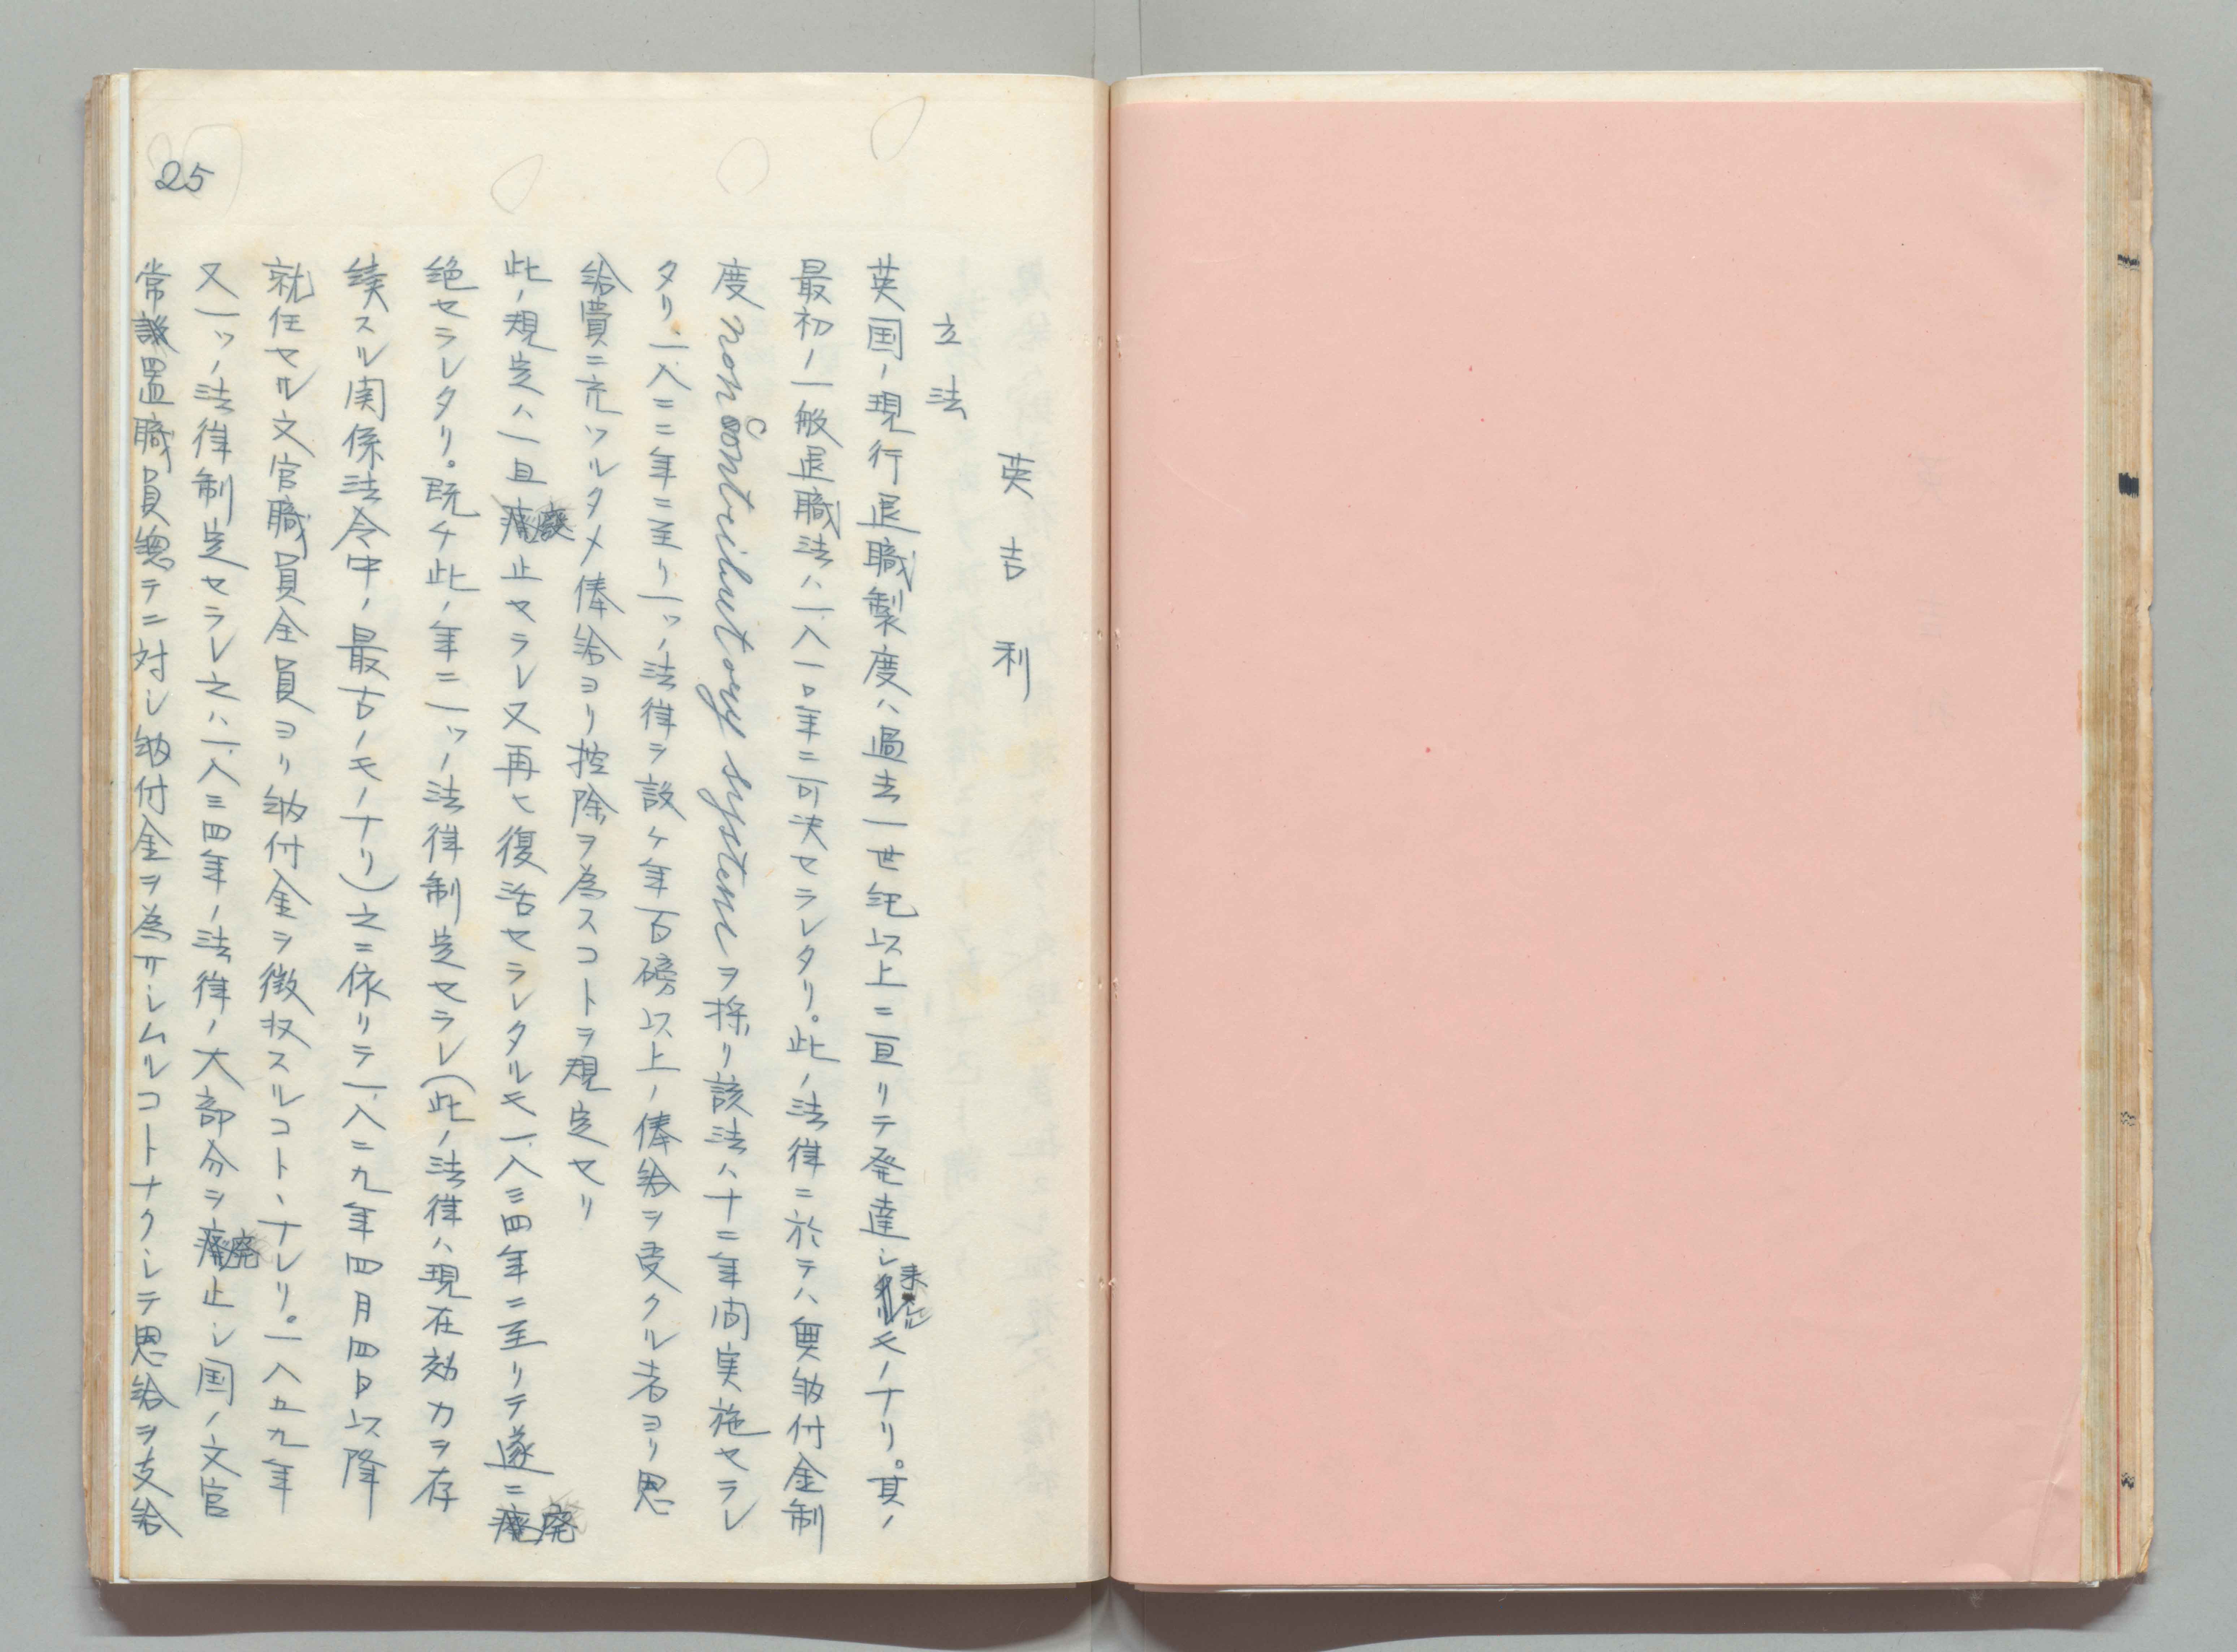 英吉利
立法
英国ノ現行退職製度ハ過去一世紀以上ニ亘リテ発達シ来レルモノナリ。其ノ
最初ノ一般退職法ハ一、八一〇年ニ可決セラレタリ。此ノ法律ニ於テハ無納付金制
度 noncontributory system ヲ採リ該法ハ十二年間実施セラレ
タリ、一、八二二年ニ至リ一ツノ法律ヲ設ケ年百磅以上ノ俸給ヲ受クル者ヨリ恩
給費ニ充ツルタメ俸給ヨリ控除ヲ為スコトヲ規定セリ
此ノ規定ハ一旦廃止セラレ又再ヒ復活セラレタルモ一、八三四年ニ至リテ遂ニ廃
絶セラレタリ。既チ此ノ年ニ一ツノ法律制定セラレ(此ノ法律ハ現在効力ヲ存
続スル関係法令中ノ最古ノモノナリ)之ニ依リテ一、八二九年四月四日以降
就任セル文官職員全員ヨリ納付金ヲ徴収スルコトヽナレリ。一八五九年
又一ツノ法律制定セラレ之ハ一、八三四年ノ法律ノ大部分ヲ廃止シ国ノ文官
常設置職員総テニ対シ納付金ヲ為サシムルコトナクシテ恩給ヲ支給
25